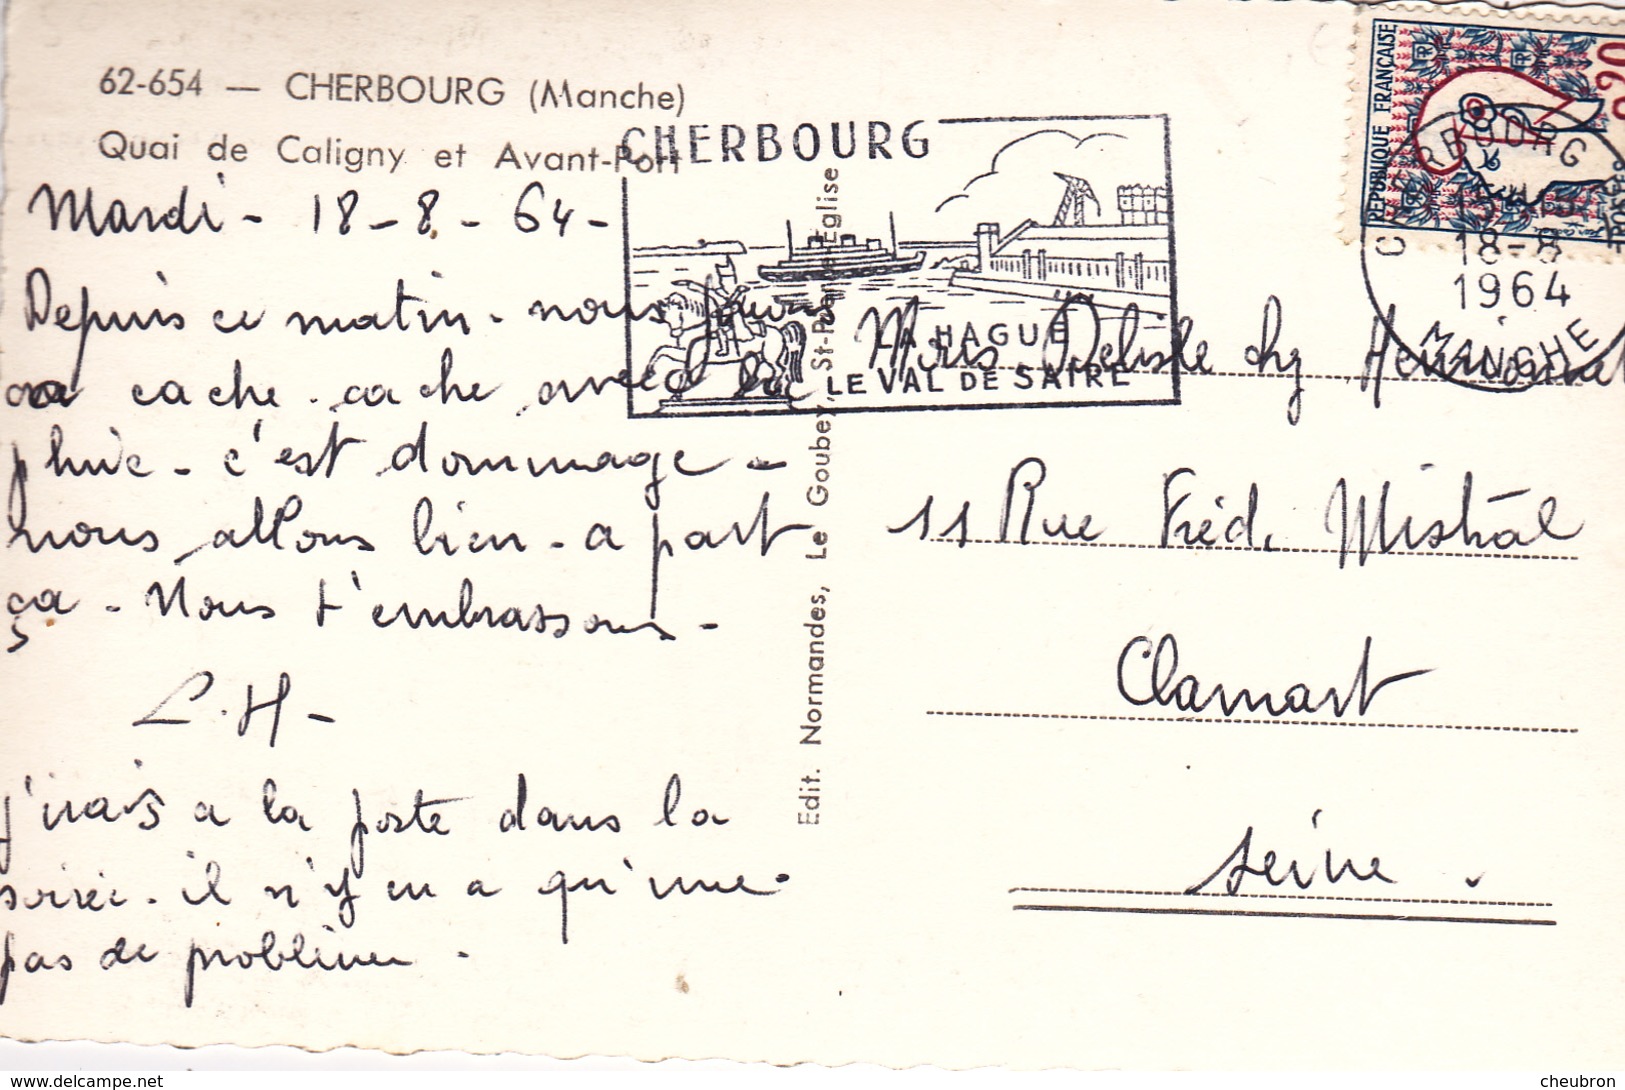 62-654 — CHERBOURG (Manche)
Quai de Caligny et Avant-Port
Mardi - 18-8-64-
Depuis ce matin - nous jouons
a cache-cache avec la
pluie - c'est dommage -
nous allons bien - a part
ça - Nous t'embrassons -
L.H -
j'irais a la poste dans la
soirée - il n'y en a qu'une
pas de problème -
Edit. Normandes, Le Goubey, St-Pierre-Eglise
CHERBOURG
LA HAGUE
LE VAL DE SAIRE
REPUBLIQUE FRANÇAISE
0,20
CHERBOURG
18-8
1964
MANCHE
Delisle chez
11 Rue Fréd. Mistral
Clamart
Seine.
delcampe.net
cheubron